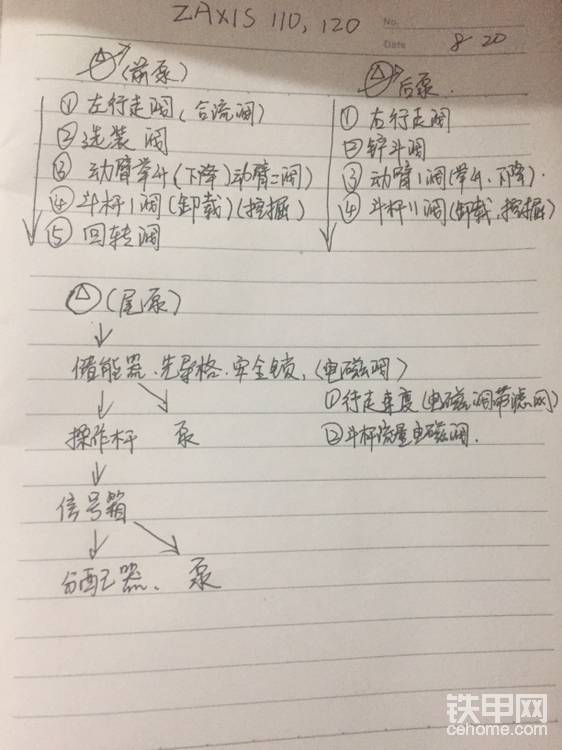 ZAXIS 110, 120
No.
Date 8-20
(前泵)
① 左行走阀(合流阀)
② 选装阀
③ 动臂举升(下降)动臂二阀)
④ 斗杆1阀(卸载)(挖掘)
⑤ 回转阀
后泵.
① 右行走阀
② 铲斗阀
③ 动臂1阀(举升、下降).
④ 斗杆11阀(卸载、挖掘)
(尾泵)
储能器.先导格.安全锁,(电磁阀)
①行走速度(电磁阀带滤网)
②斗杆流量电磁阀.
操作杆 泵
信号箱
分配器. 泵
铁甲网
cehome.com